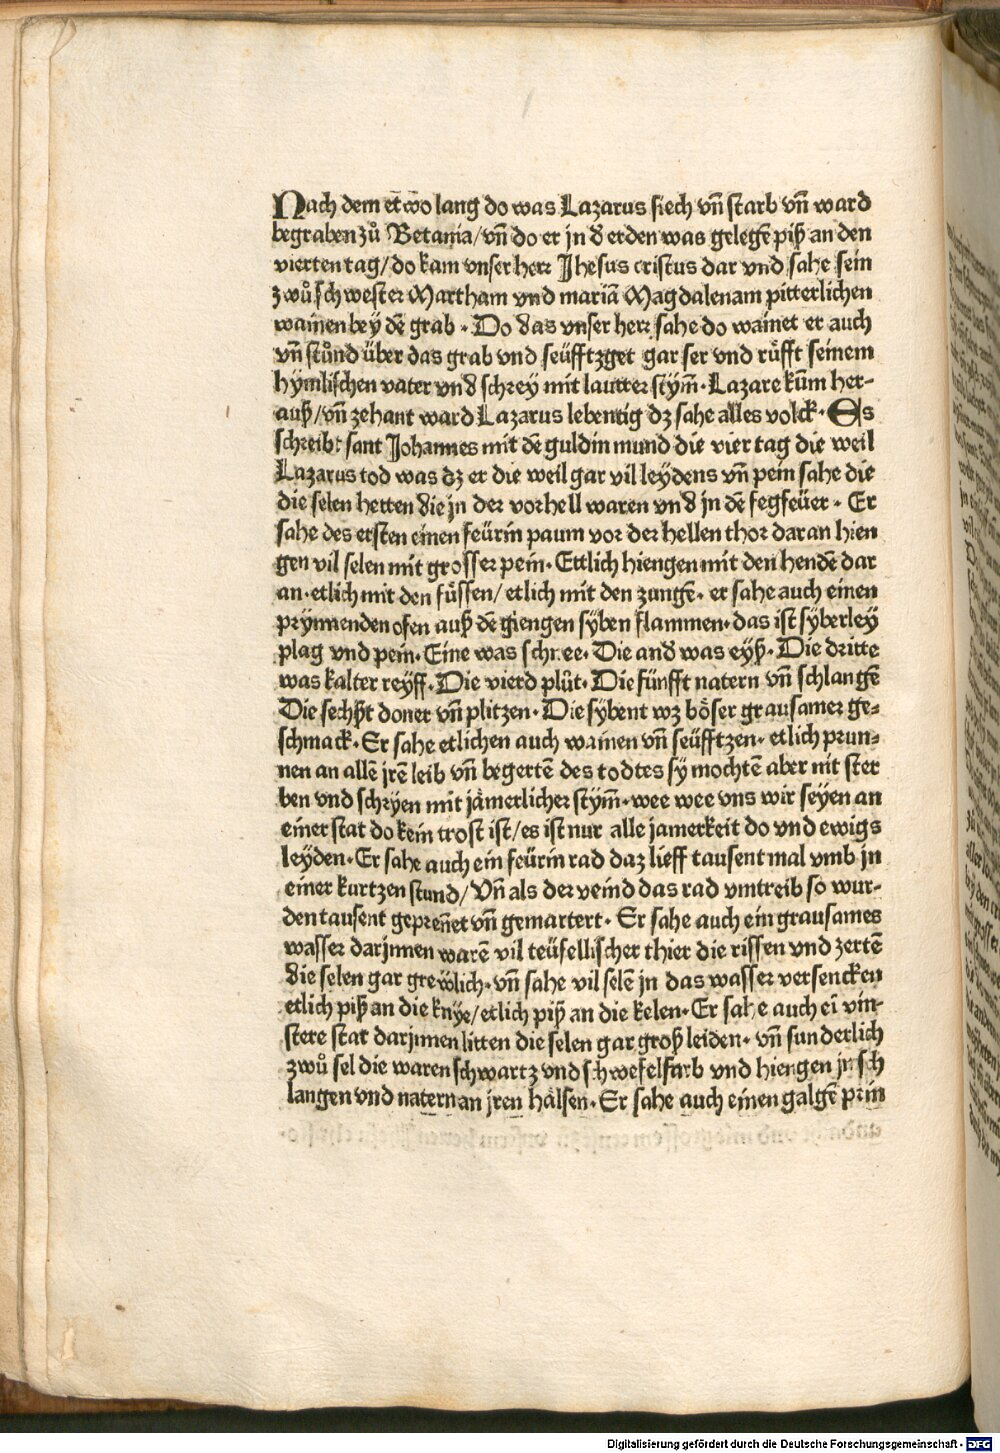 Nach dem etwo lang do was Lazarus siech vñ starb vñ ward
begraben zů Betania/ vñ do er jn d erden was gelegē piß an den
vierten tag/ do kam vnser herr Jhesus cristus dar vnd sahe sein
zwů schwester Martham vnd mariā Magdalenam pitterlichen
wainen beÿ dē grab. Do das vnser herr sahe do wainet er auch
vñ stůnd über das grab vnd seüfftzget gar ser vnd růfft seinem
hÿmlischen vater vnd schrey mit lautter stÿm̄. Lazare kūm her-
auß/ vñ zehant ward Lazarus lebentig dz sahe alles volck. Es
schreibt sant Johannes mit dē guldin mund die vier tag die weil
Lazarus tod was dz er die weil gar vil leÿdens vñ pein sahe die
die selen hetten die jn der vorhell waren vnd jn dē fegfeüer. Er
sahe des ersten einen feürin paum vor der hellen thor daran hien
gen vil selen mit grosser pein. Ettlich hiengen mit den hendē dar
an. etlich mit den fůssen/ etlich mit den zungē. er sahe auch einen
prÿnnenden ofen auß dē giengen sÿben flammen. das ist sÿberleÿ
plag vnd pein. Eine was schnee. Die and was eÿß. Die dritte
was kalter reÿff. Die vierd plůt. Die fünfft natern vñ schlangē
Die sechßt doner vñ plitzen. Die sybent wz böser grausamer ge-
schmack. Er sahe etlichen auch wainen vñ seüfftzen. etlich prun-
nen an allē jrē leib vñ begertē des todtes sÿ mochtē aber nit ster
ben vnd schryen mit jämerlicher stÿm̄. wee wee vns wir seyen an
einer stat do kein trost ist/ es ist nur alle jamerkeit do vnd ewigs
leÿden. Er sahe auch ein feürin rad daz lieff tausent mal vmb jn
einer kurtzen stund/ Vñ als der veind das rad vmtreib so wur-
den tausent geprēnet vñ gemartert. Er sahe auch ein grausames
wasser darjnnen warē vil teüfellischer thier die rissen vnd zertē
die selen gar grewlich. vñ sahe vil selē jn das wasser versencken
etlich piß an die knÿe/ etlich piß an die kelen. Er sahe auch eī vin-
stere stat darjnnen litten die selen gar groß leiden. vñ sunderlich
zwů sel die waren schwartz vnd schwefelfarb vnd hiengen jn sch
langen vnd natern an jren hälsen. Er sahe auch einen galgē prin
Digitalisierung gefördert durch die Deutsche Forschungsgemeinschaft - DFG